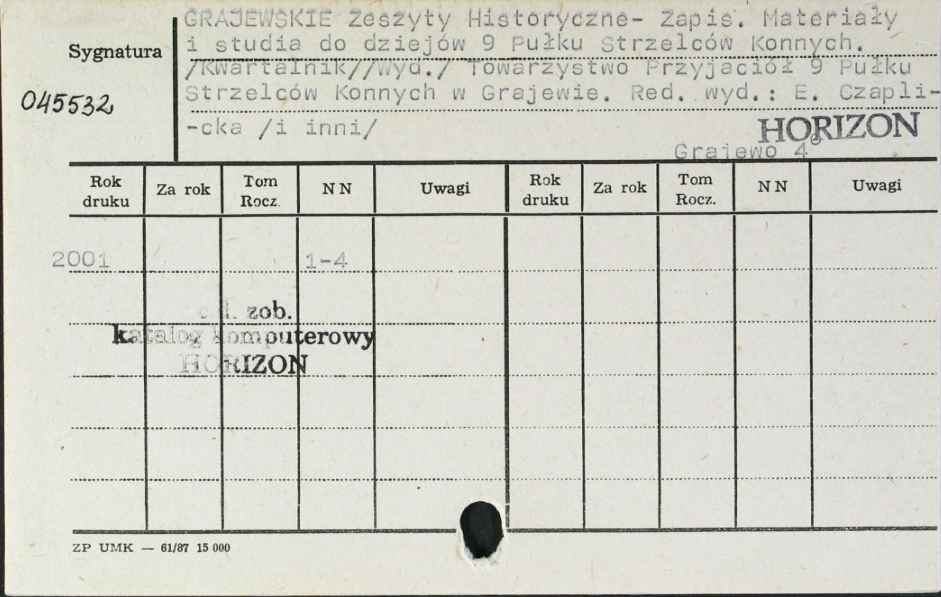 GRAJEWSKIE Zeszyty Historyczne- Zapis. Materiały
Sygnatura i studia do dziejów 9 Pułku Strzelców Konnych.
/Kwartalnik//Wyd./ Towarzystwo Przyjaciół 9 Pułku
045532 Strzelców Konnych w Grajewie. Red. wyd.: E. Czapli-
-cka /i inni/ HORIZON
Grajewo 4°
Rok druku Za rok Tom Rocz. NN Uwagi Rok druku Za rok Tom Rocz. NN Uwagi
2001 1-4
c.d. zob.
katalog komputerowy
HORIZON
ZP UMK — 61/87 15 000